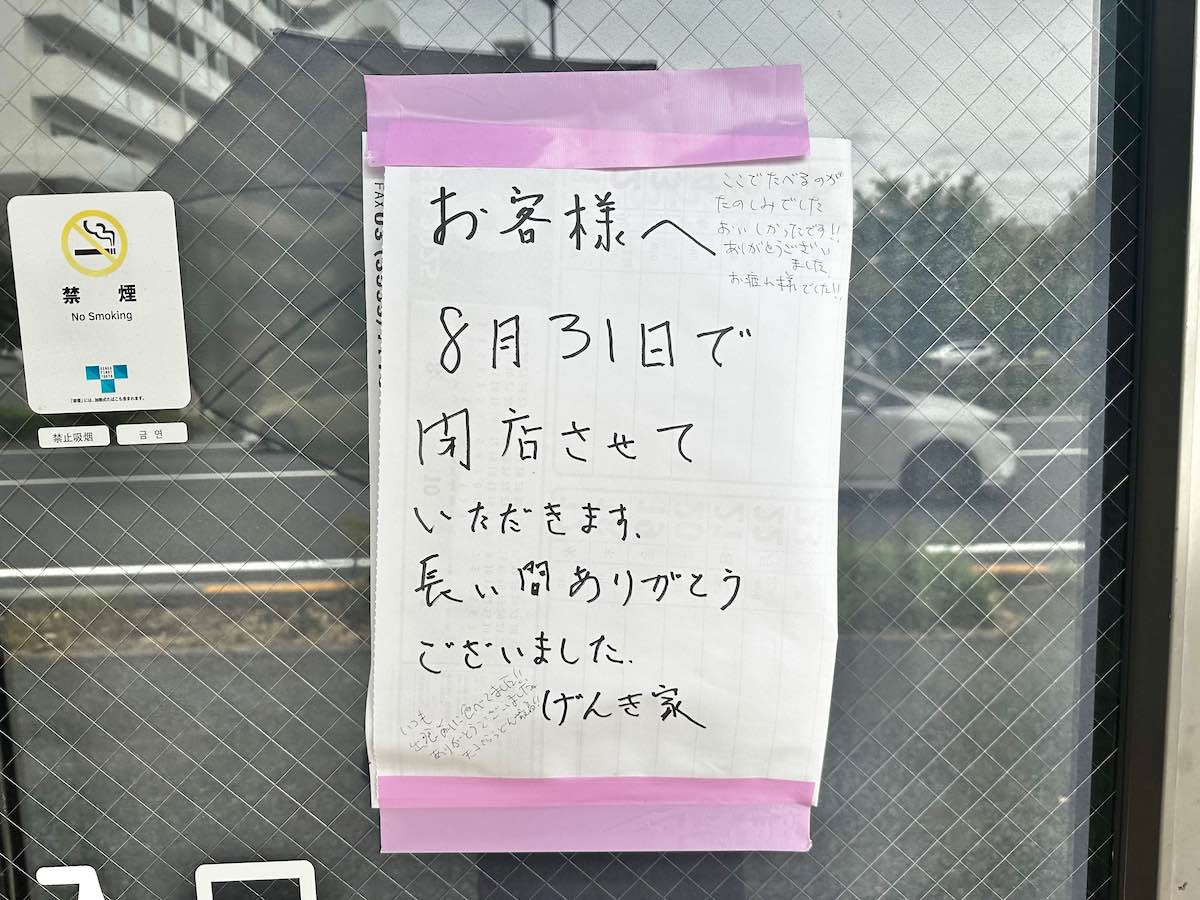 お客様へ
8月31日で
閉店させて
いただきます、
長い間ありがとう
ございました.
げんき家
ここでたべるのが
たのしみでした
おいしかったです!!
ありがとうござい
ました
お疲れ様でした!!
いつも
食べてました!!
ありがとうございました
禁煙
No Smoking
「禁煙」には、加熱式たばこも含まれます。
禁止吸烟
금연
FAX 03